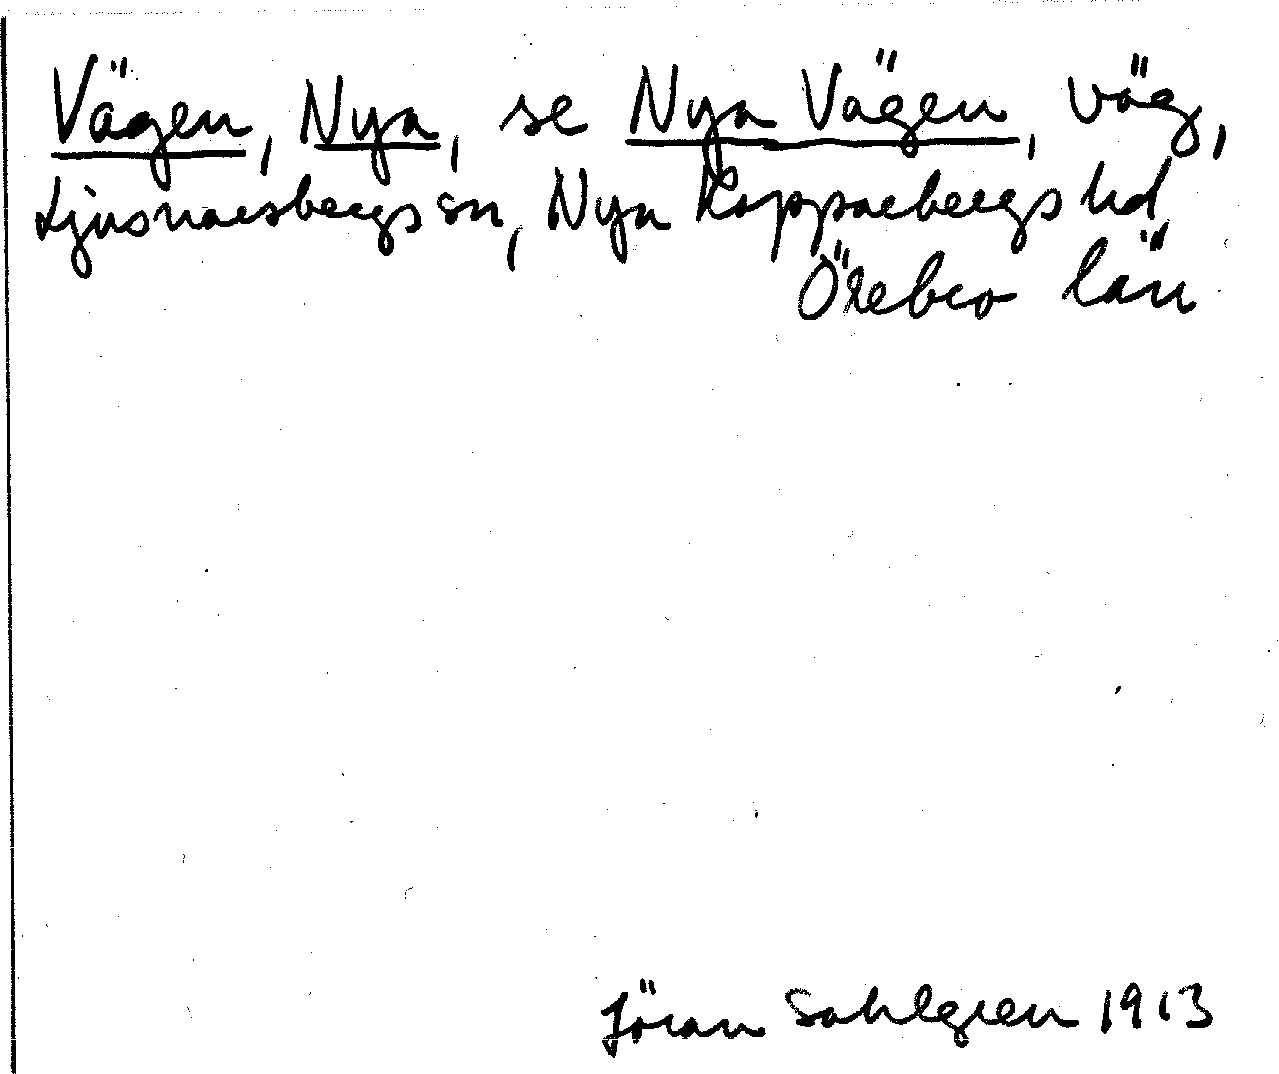 Vägen, Nya, se Nya Vägen, väg,
Ljusnarsbergs sn, Nya Kopparbergs hd,
Örebro län
Jöran Sahlgren 1913